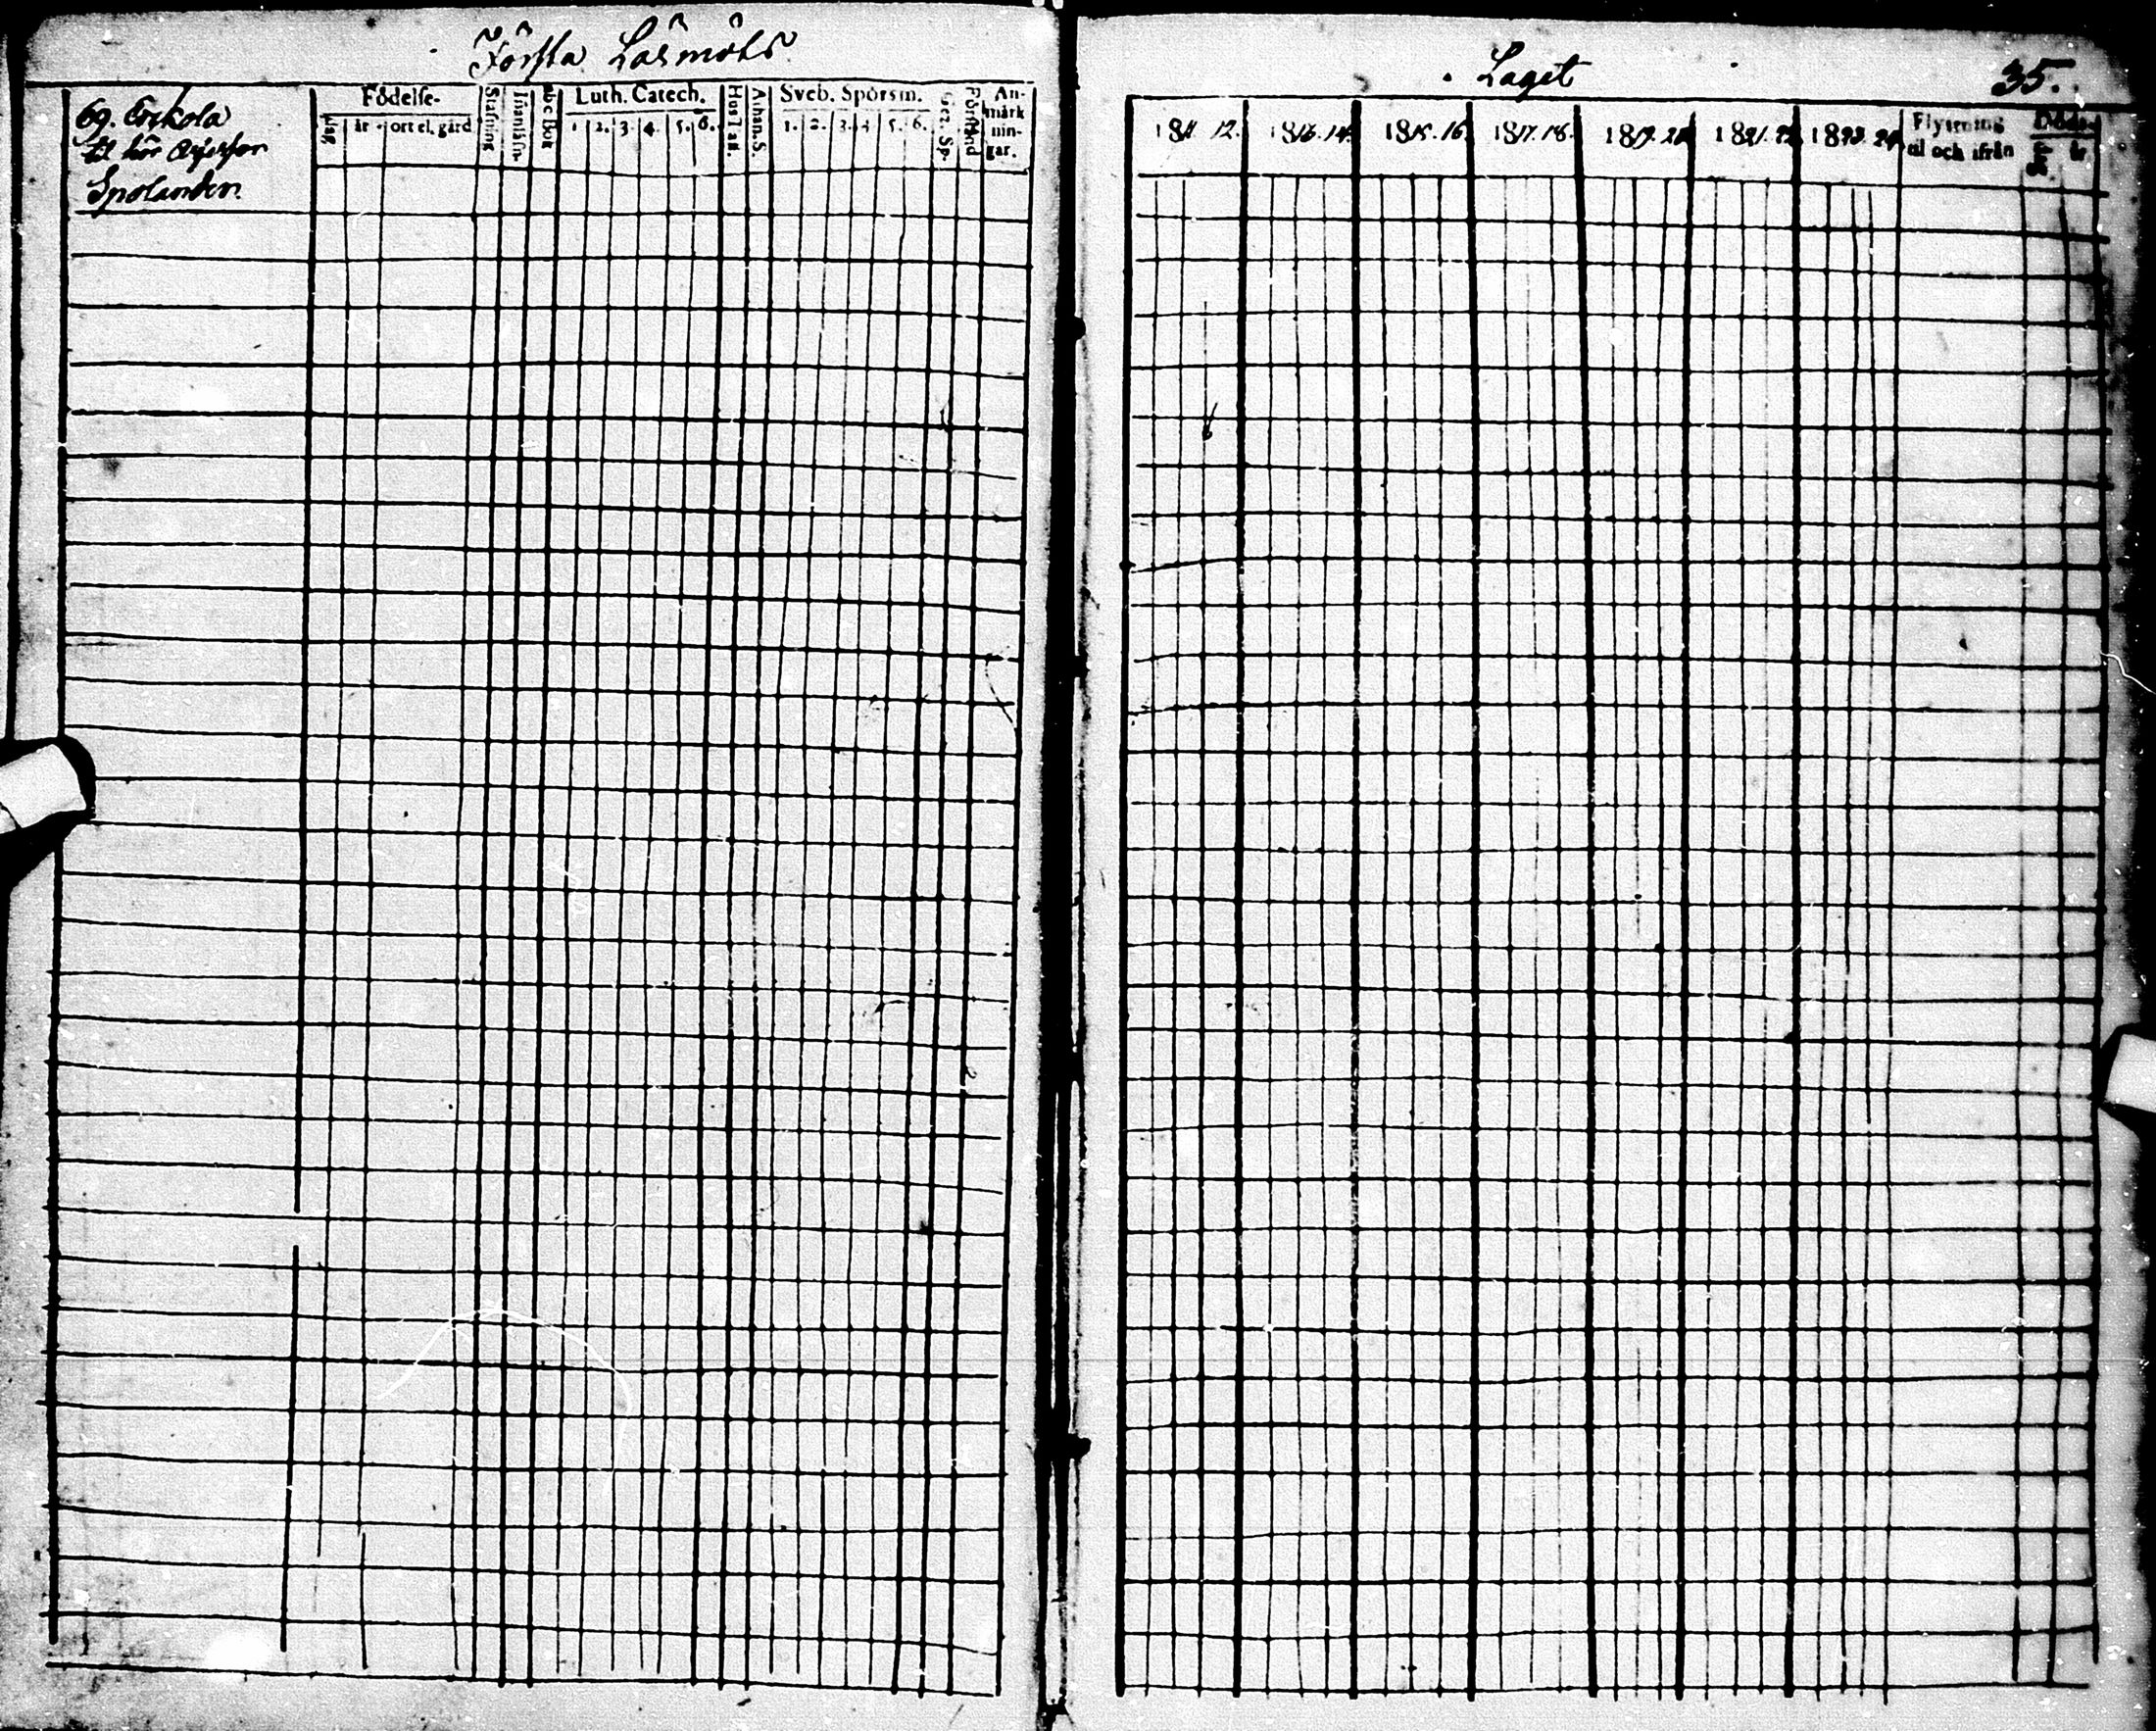 Första Läsmöts
69. Erkola
til hör
Spolanden
Födelse-
dag år ort el. gård
Stafning
Innanläsn.
abc Bok
Luth. Catech.
1 2. 3. 4. 5. 6.
Hustafl.
Athan. S.
Sveb. Spörsm.
1. 2. 3. 4 5. 6.
Gez. Sp.
Förstånd
An-
märk
nin-
gar.
Laget
35.
1811. 12. 1813. 14. 1815. 16. 1817. 18. 1819. 20 1821. 22. 1823. 24.
Flyttning
til och ifrån
Döde.
dag år